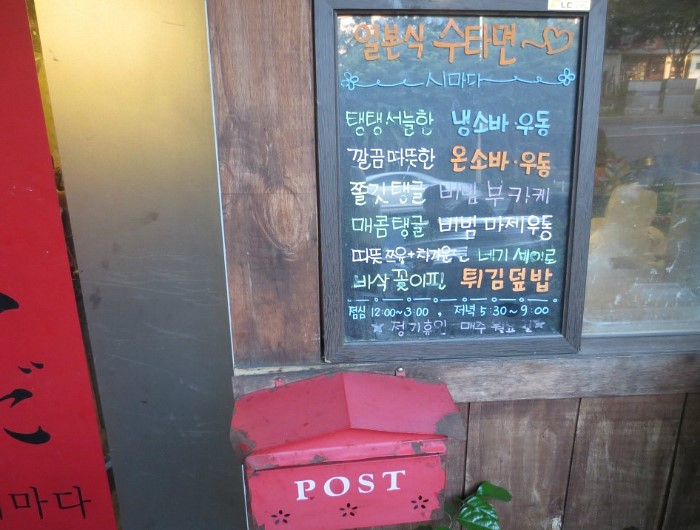 일본식 수타면~
시마다
탱탱 서늘한 냉소바·우동
깔끔 따뜻한 온소바·우동
쫄깃 탱글 비빔 부카케
매콤 탱글 비빔 마제우동
따뜻 쯔유+차가운면 네기 세이로
바삭 꽃이피! 튀김덮밥
점심 12:00~3:00, 저녁 5:30~9:00
정기휴일 매주 월요일
LC
POST
だ
시마다